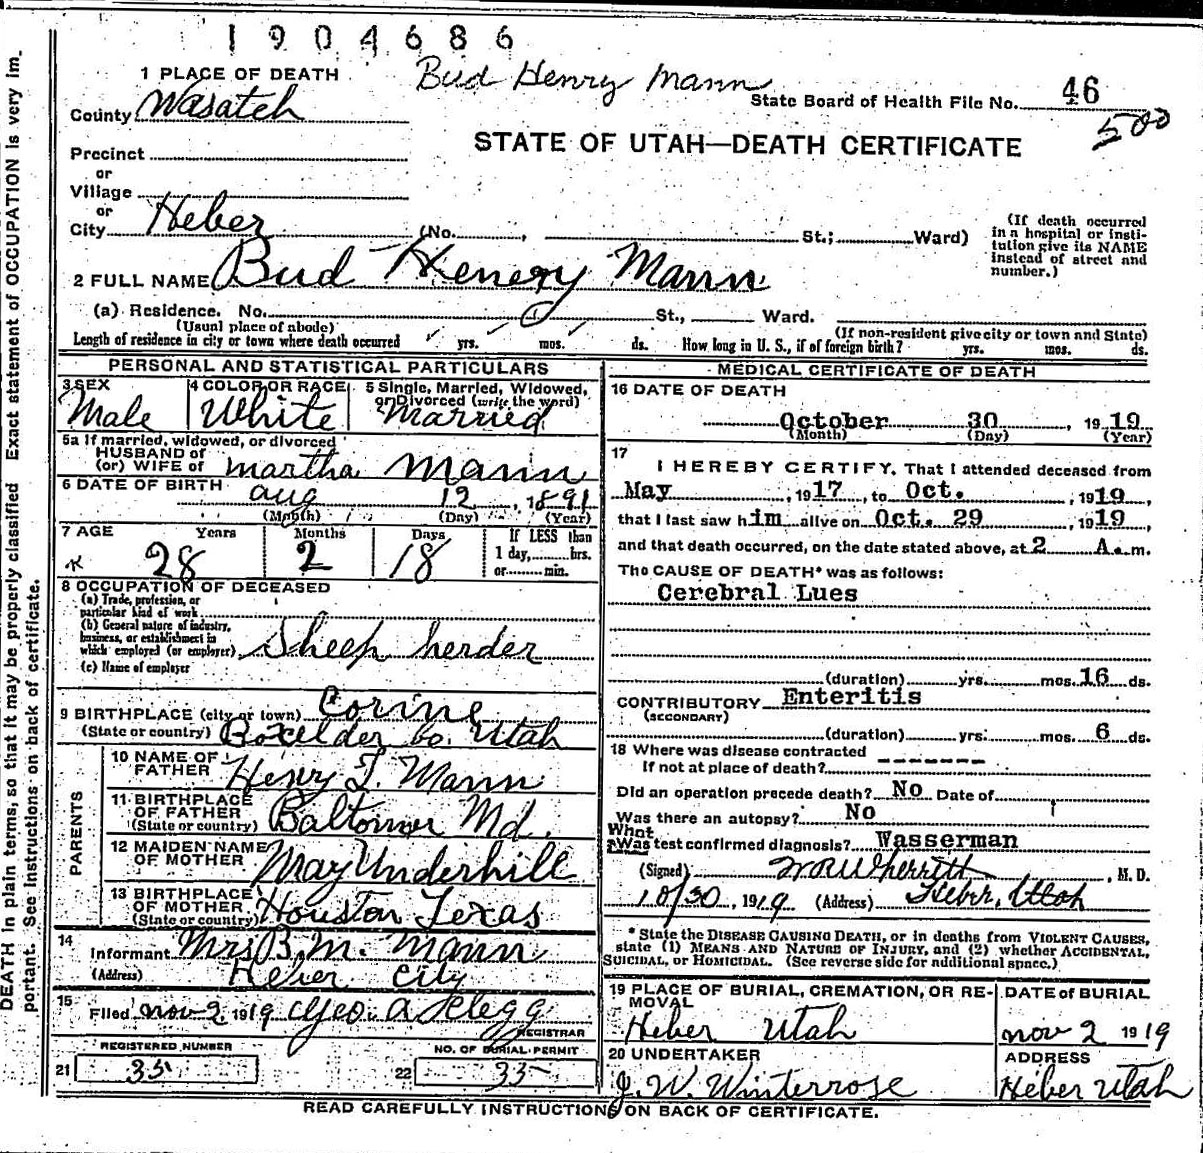 1904686
1 PLACE OF DEATH
Bud Henry Mann
County Wasatch
State Board of Health File No. 46
500
STATE OF UTAH—DEATH CERTIFICATE
Precinct
or
Village
or
City Heber (No. , St.; Ward)
(If death occurred in a hospital or insti-
tution give its NAME
instead of street and
number.)
2 FULL NAME Bud Henery Mann
(a) Residence. No. St., Ward.
(Usual place of abode)
(If non-resident give city or town and State)
Length of residence in city or town where death occurred yrs. mos. ds. How long in U. S., if of foreign birth? yrs. mos. ds.
PERSONAL AND STATISTICAL PARTICULARS
3 SEX
Male
4 COLOR OR RACE
White
5 Single, Married, Widowed,
or Divorced (write the word)
Married
5a If married, widowed, or divorced
HUSBAND of
(or) WIFE of Martha Mann
6 DATE OF BIRTH
Aug 12, 1891
(Month) (Day) (Year)
7 AGE Years Months Days
28 2 18
If LESS than
1 day, hrs.
or min.
8 OCCUPATION OF DECEASED
(a) Trade, profession, or
particular kind of work
(b) General nature of industry,
business, or establishment in
which employed (or employer)
Sheep herder
(c) Name of employer
9 BIRTHPLACE (city or town) Corine
(State or country) Boxelder Co. Utah
PARENTS
10 NAME OF
FATHER Henry T. Mann
11 BIRTHPLACE
OF FATHER
(State or country) Baltomor Md.
12 MAIDEN NAME
OF MOTHER May Underhill
13 BIRTHPLACE
OF MOTHER
(State or country) Houston Texas
14
Informant Mrs B. M. Mann
(Address) Heber City
15
Filed Nov 2 1919 Geo. A Clegg
REGISTRAR
REGISTERED NUMBER
21 35
NO. OF BURIAL PERMIT
22 35
MEDICAL CERTIFICATE OF DEATH
16 DATE OF DEATH
October 30, 1919
(Month) (Day) (Year)
17
I HEREBY CERTIFY, That I attended deceased from
May, 1917, to Oct., 1919,
that I last saw him alive on Oct. 29, 1919,
and that death occurred, on the date stated above, at 2 A. m.
The CAUSE OF DEATH* was as follows:
Cerebral Lues
(duration) yrs. mos. 16 ds.
CONTRIBUTORY Enteritis
(SECONDARY)
(duration) yrs. mos. 6 ds.
18 Where was disease contracted
If not at place of death? -------
Did an operation precede death? No Date of
Was there an autopsy? No
What
Was test confirmed diagnosis? Wasserman
(Signed) , M. D.
10/30, 1919 (Address) Heber, Utah
* State the DISEASE CAUSING DEATH, or in deaths from VIOLENT CAUSES,
state (1) MEANS AND NATURE OF INJURY, and (2) whether ACCIDENTAL,
SUICIDAL, or HOMICIDAL. (See reverse side for additional space.)
19 PLACE OF BURIAL, CREMATION, OR RE-
MOVAL
Heber Utah
DATE of BURIAL
Nov 2 1919
20 UNDERTAKER
J. W. Winterrose
ADDRESS
Heber Utah
READ CAREFULLY INSTRUCTIONS ON BACK OF CERTIFICATE.
DEATH in plain terms, so that it may be properly classified Exact statement of OCCUPATION is very im-
portant. See Instructions on back of certificate.